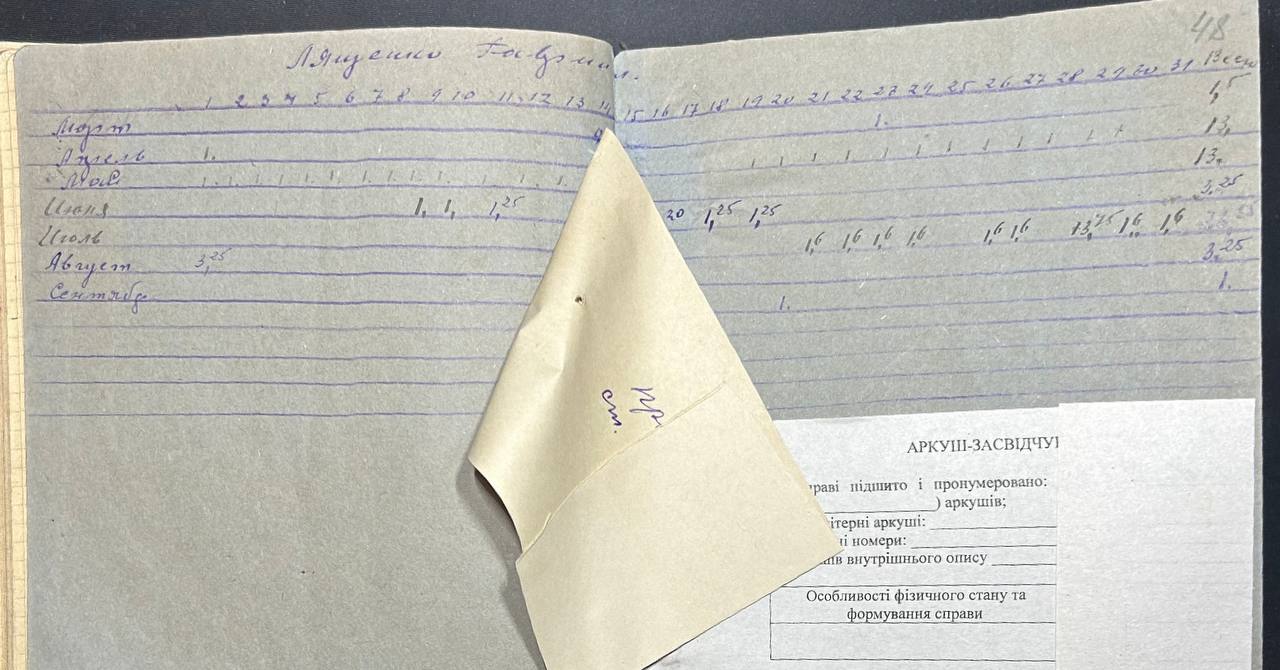 48
Лященко Гавриил.
1 2 3 4 5 6 7 8 9 10 11 12 13 14 15 16 17 18 19 20 21 22 23 24 25 26 27 28 29 30 31 Всего
Март 1. 1,5
Апрель 1. 1 1 1 1 1 1 1 1 1 1 1 13,
Май 1 1 1 1 1 1 1 1 1 1 1 1 13,
Июня 1, 1, 1,25 20 1,25 1,25 3,25
Июль 1,6 1,6 1,6 1,6 1,6 1,6 13,75 1,6 1,6
Август 3,25 3,25
Сентябр 1. 1.
пр
ст.
АРКУШ-ЗАСВІДЧУ
раві підшито і пронумеровано:
) аркушів;
ітерні аркуші:
ні номери:
ів внутрішнього опису
Особливості фізичного стану та
формування справи